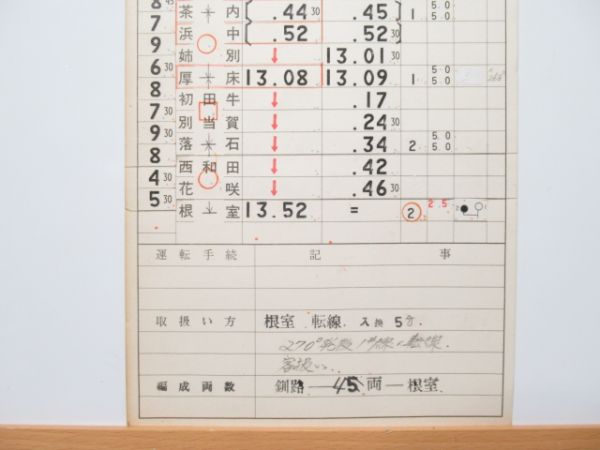 8 45
茶 内 .44 30 .45 30 1 5 0 5 0
7 30
浜 中 .52 .52 30
9
姉 別 ↓ 13.01 30
6 30
厚 床 13.08 13.09 1 5 0 5 0
8 30
初 田 牛 ↓ .17
7 30
別 当 賀 ↓ .24 30
9 30
落 石 ↓ .34 2 5 0 5 0
8
西 和 田 ↓ .42
4 30
花 咲 ↓ .46 30
5 30
根 室 13.52 = ② 2 5
運転手続 記 事
取扱い方 根室 転線. 入換 5分.
客扱い.
編成両数 釧路 ― 45 両 ― 根室